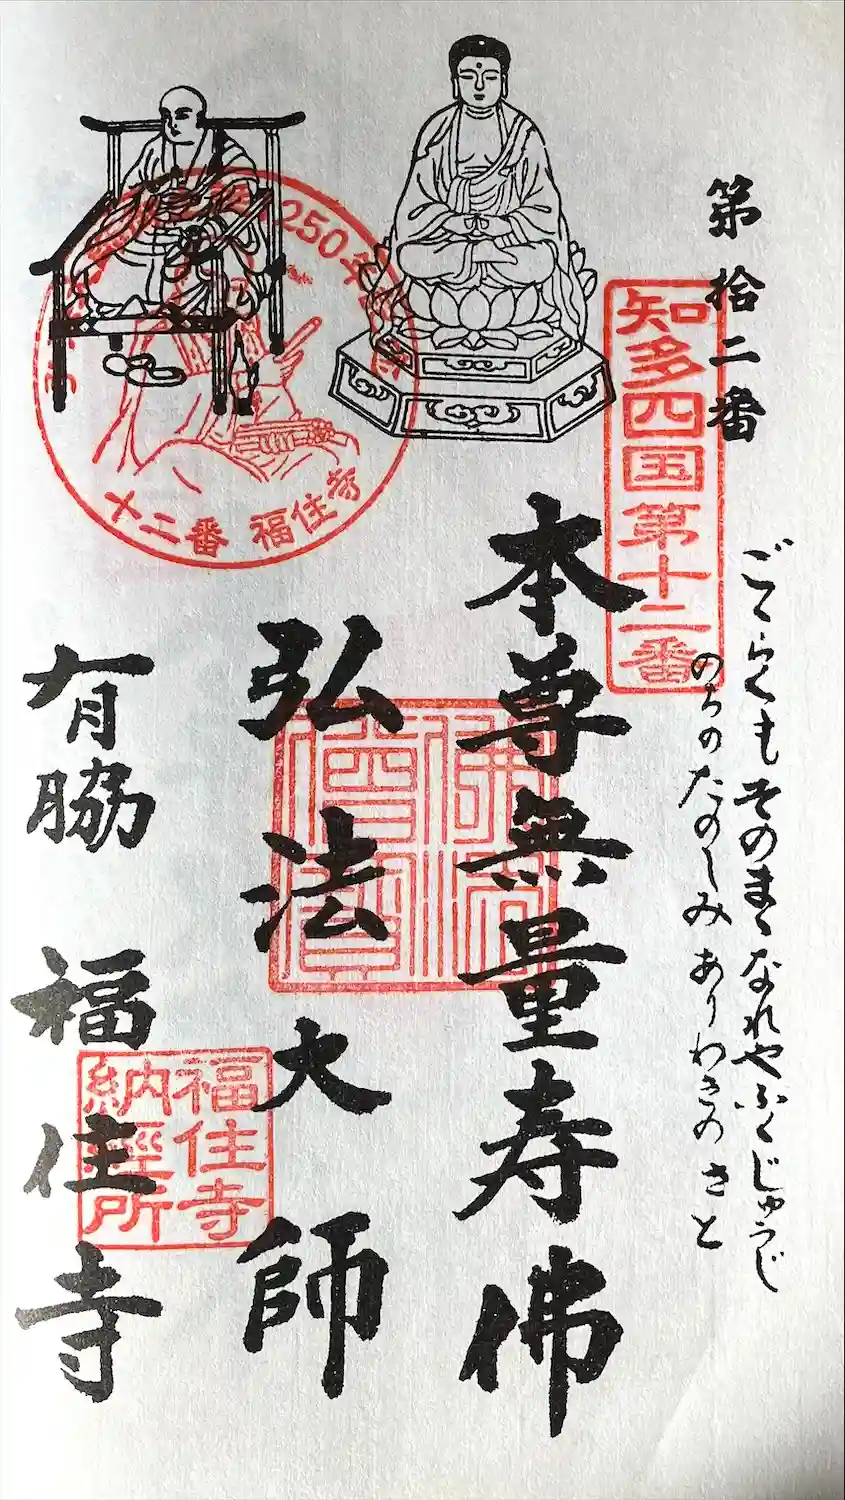 第拾二番
知多四国第十二番
ごくらくもそのまゝなれやふくじゅうじ
のちのたのしみありわきのさと
本尊無量寿佛
弘法大師
有脇 福住寺
250年
十二番 福住寺
福住寺
納経所